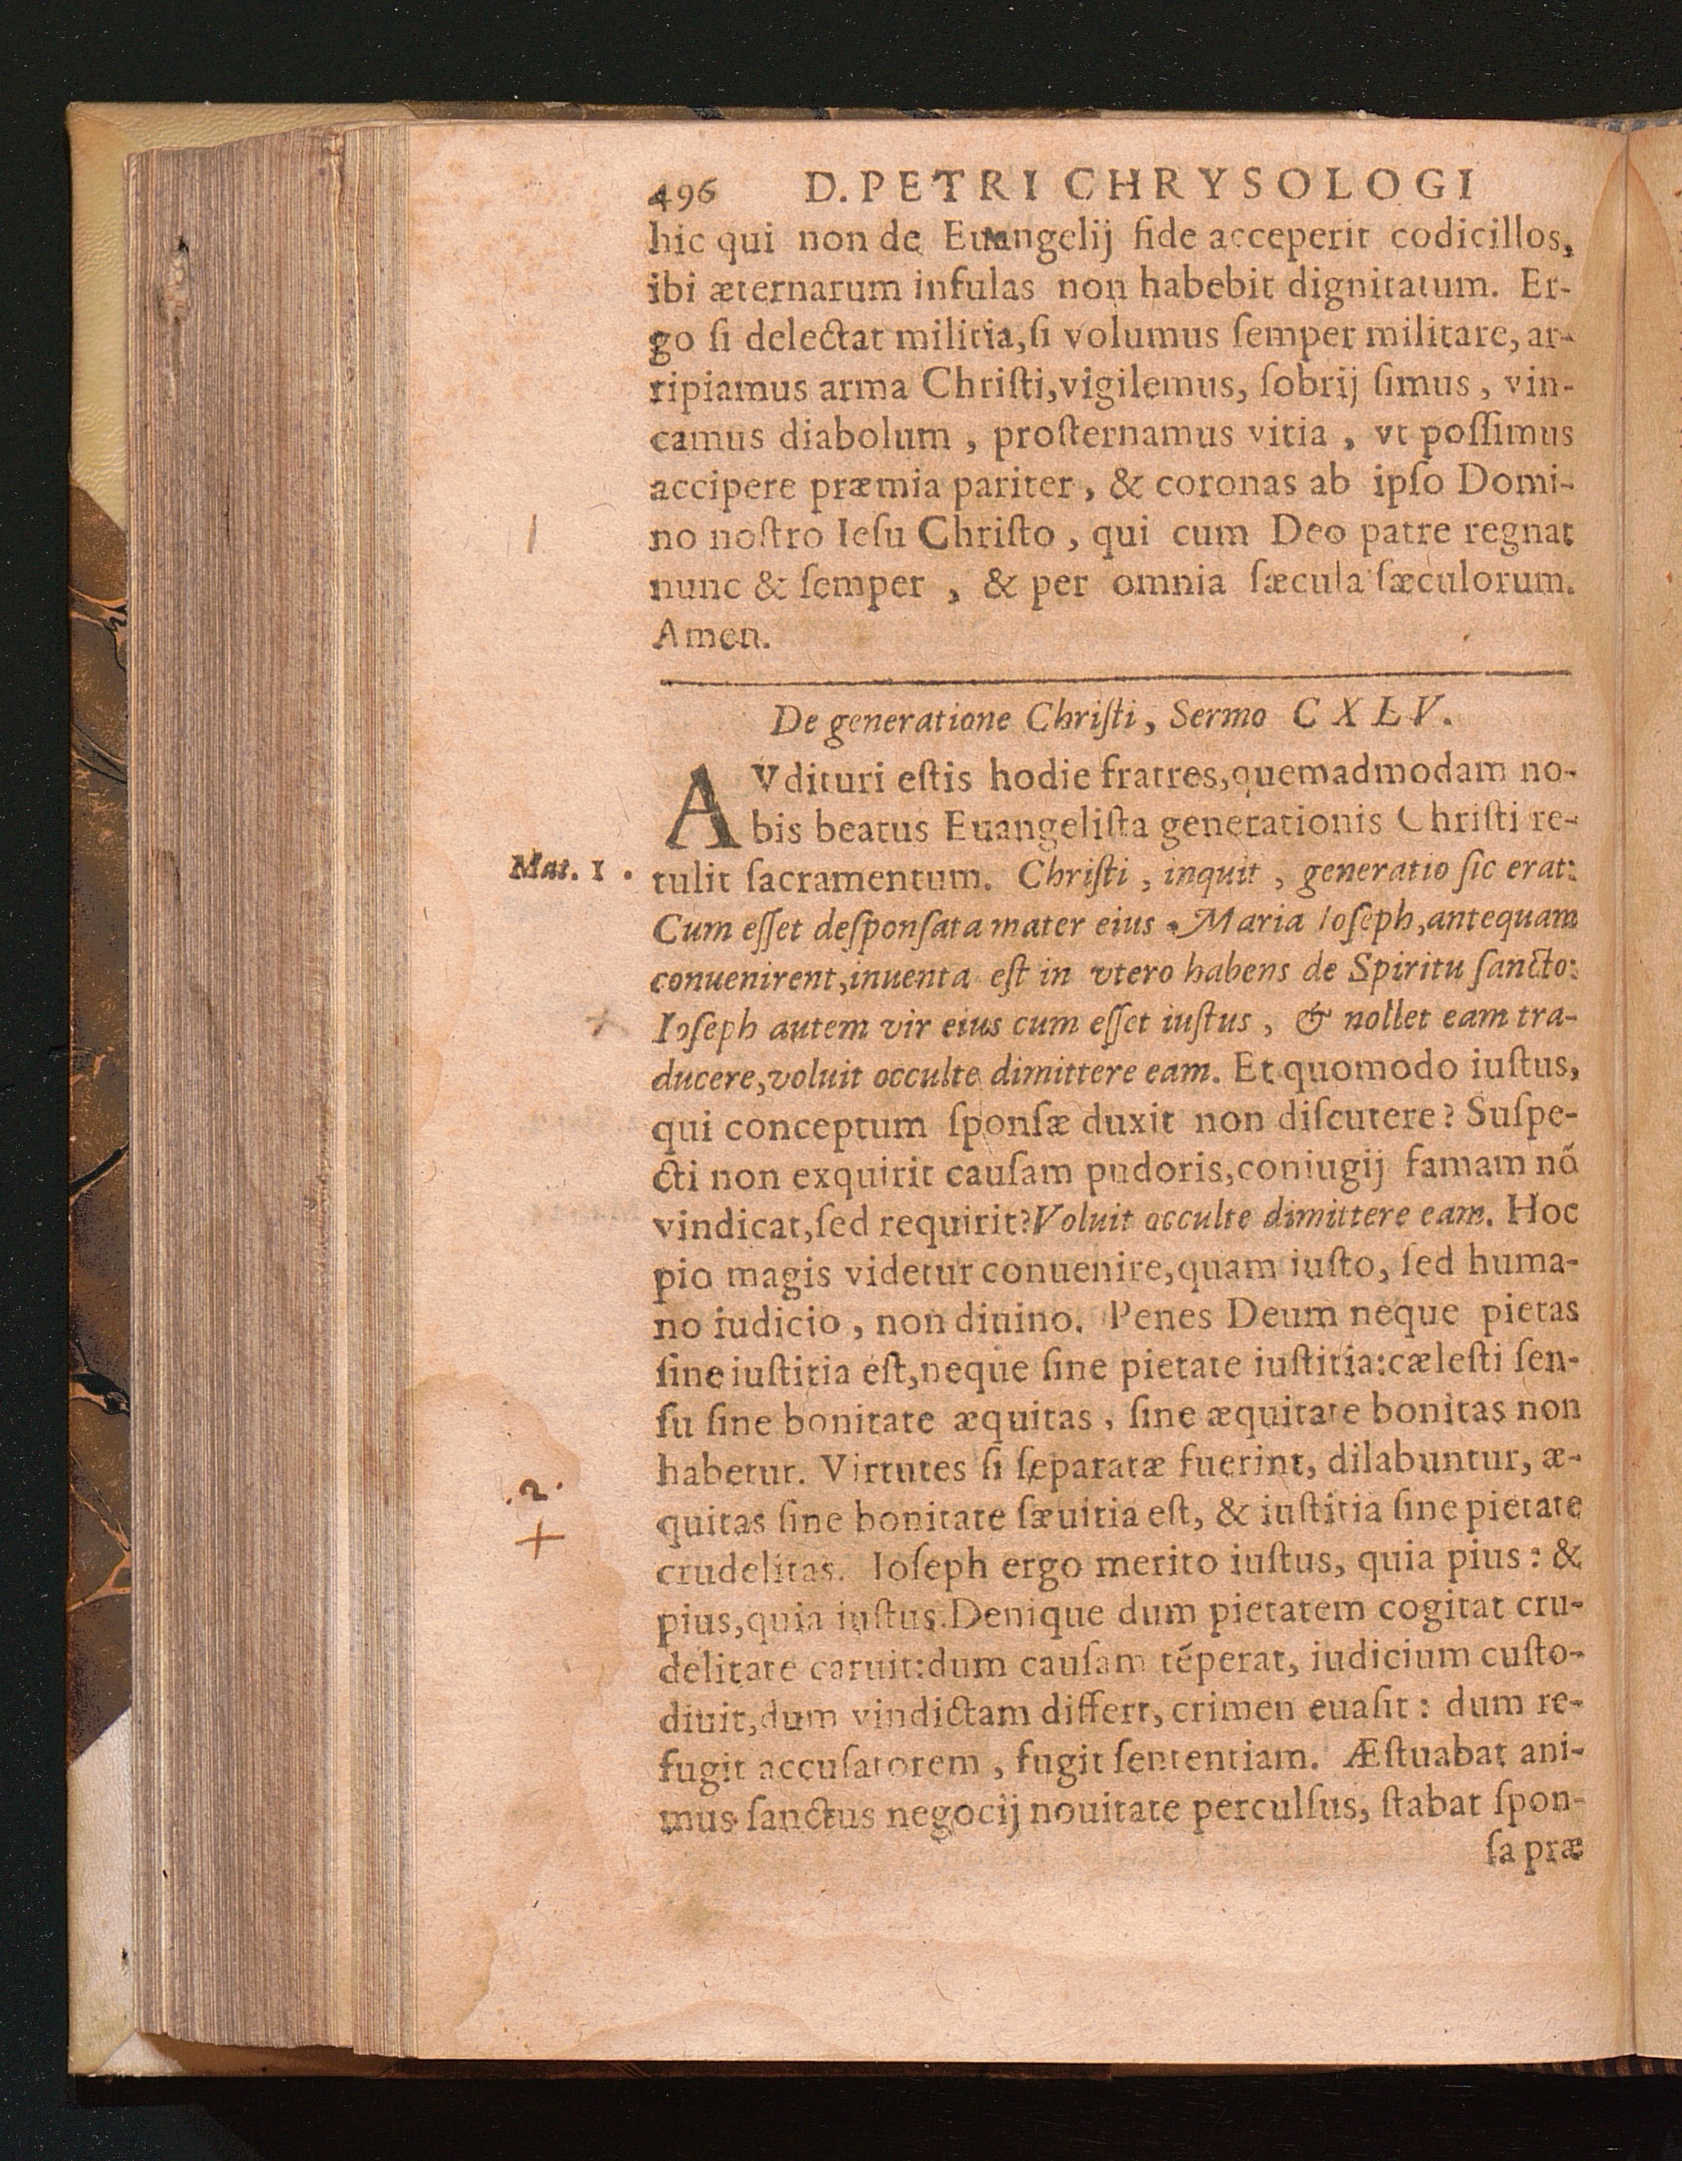 496 D. PETRI CHRYSOLOGI
hic qui non de Euangelij fide acceperit codicillos,
ibi æternarum infulas non habebit dignitatum. Er-
go ſi delectat militia,ſi volumus ſemper militare, ar-
ripiamus arma Chriſti,vigilemus, ſobrij ſimus , vin-
camus diabolum , proſternamus vitia , vt poſſimus
accipere præmia pariter , & coronas ab ipſo Domi-
no noſtro Ieſu Chriſto , qui cum Deo patre regnat
nunc & ſemper , & per omnia ſæcula ſæculorum.
Amen.
De generatione Chriſti , Sermo CXLV.
AVdituri eſtis hodie fratres,quemadmodam no-
bis beatus Euangeliſta generationis Chriſti re-
Mat. 1 .
tulit ſacramentum. Chriſti , inquit , generatio ſic erat:
Cum eſſet deſponſata mater eius Maria Ioſeph,antequam
conuenirent,inuenta eſt in vtero habens de Spiritu ſancto:
Ioſeph autem vir eius cum eſſet iuſtus , & nollet eam tra-
ducere,voluit occulte dimittere eam. Et quomodo iuſtus,
qui conceptum ſponſæ duxit non diſcutere? Suſpe-
cti non exquirit cauſam pudoris,coniugij famam nõ
vindicat,ſed requirit?Voluit occulte dimittere eam. Hoc
pio magis videtur conuenire,quam iuſto, ſed huma-
no iudicio , non diuino. Penes Deum neque pietas
ſine iuſtitia eſt,neque ſine pietate iuſtitia:cæleſti ſen-
ſu ſine bonitate æquitas , ſine æquitate bonitas non
habetur. Virtutes ſi ſeparatæ fuerint, dilabuntur, æ-
.2.
quitas ſine bonitate ſæuitia eſt, & iuſtitia ſine pietate
crudelitas. Ioſeph ergo merito iuſtus, quia pius : &
pius,quia iuſtus.Denique dum pietatem cogitat cru-
delitate caruit:dum cauſam tẽperat, iudicium cuſto-
diuit,dum vindictam differt, crimen euaſit : dum re-
fugit accuſatorem , fugit ſententiam. Æſtuabat ani-
mus ſanctus negocij nouitate perculſus, ſtabat ſpon-
ſa præ